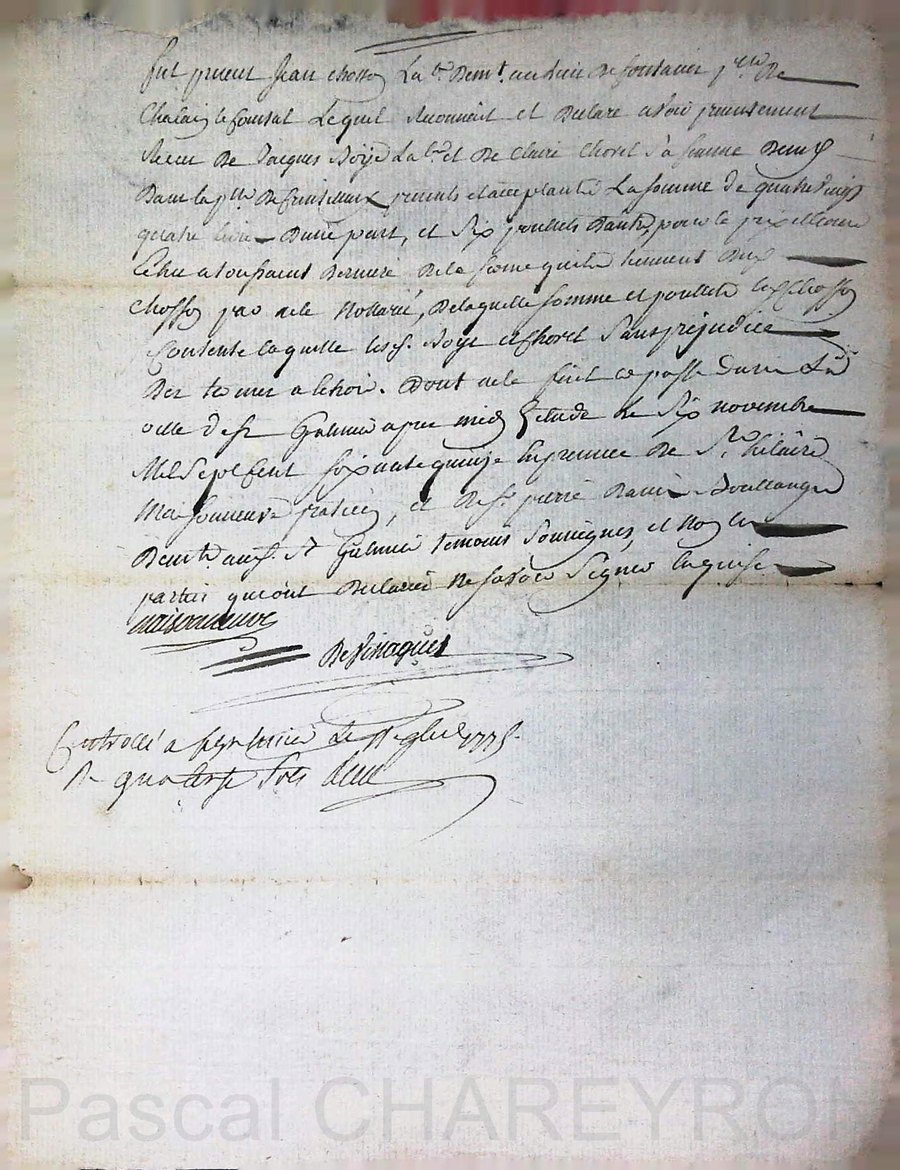 fut present Jean chosson La.r Demt. au lieu De fontanes psse De
Chalain le Comtal Lequel Reconnoit et Declare avoir presentement
Receu De Jacques Noÿé La.r et De Claire Chorel Sa femme Demt
Dans la psse De presents et acceptants La somme de quatre vingt
quatre livres D'une part, et Six poullets D'autre, pour le prix
Echu a toussaint Derniere De la ferme qu'ils tiennent Dud
chosson par acte Nottarié, De laquelle somme et poullets led Chosson
Contente En quitte lesd. Noÿé et Chorel Sans prejudice
Des termes a Echoir. Dont acte fait et passé dans La
ville de St Galmier apres midy Etude Le Six novembre
Mil Sept Cent Soixante quinze En presence De Sr. hilaire
Maisonneuve praticien, et De Sr. pierre Boullanger
Demts. aud. St Galmier temoins Soussignés, et Non les
parties qui ont Declaré Ne savoir Signer Enquises
maisonneuve
Devinaques
Controllé a St galmier Le 9bre 1775.
R quatorze Sols
Pascal CHAREYRON